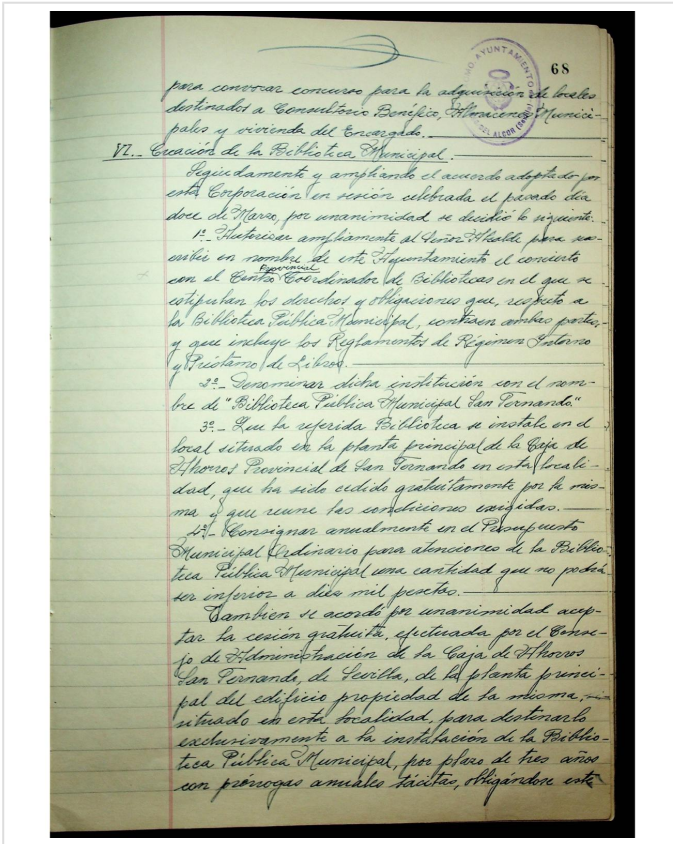 EXCMO AYUNTAMIENTO
DEL ALCOR (Sevilla)
68
para convocar concurso para la adquisición de locales
destinados a Consultorio Benéfico, Almacenes Munici-
pales y vivienda del Encargado.
VI.- Creación de la Biblioteca Municipal.
Seguidamente y ampliando el acuerdo adoptado por
esta Corporación en sesión celebrada el pasado día
doce de Marzo, por unanimidad se decidió lo siguiente:
1º.- Autorizar ampliamente al Señor Alcalde para sus-
cribir en nombre de este Ayuntamiento el concierto
Provincial
con el Centro Coordinador de Bibliotecas en el que se
estipulan los derechos y obligaciones que, respecto a
la Biblioteca Pública Municipal, contraen ambas partes,
y que incluye los Reglamentos de Régimen Interno
y Préstamo de Libros.
2º.- Denominar dicha institución con el nom-
bre de "Biblioteca Pública Municipal San Fernando."
3º.- Que la referida Biblioteca se instale en el
local situado en la planta principal de la Caja de
Ahorros Provincial de San Fernando en esta locali-
dad, que ha sido cedido gratuitamente por la mis-
ma y que reune las condiciones exigidas.
4º.- Consignar anualmente en el Presupuesto
Municipal Ordinario para atenciones de la Biblio-
teca Pública Municipal una cantidad que no podrá
ser inferior a diez mil pesetas.
Tambien se acordó por unanimidad acep-
tar la cesión gratuita, efectuada por el Conse-
jo de Administración de la Caja de Ahorros
San Fernando, de Sevilla, de la planta princi-
pal del edificio propiedad de la misma,
situado en esta localidad, para destinarlo
exclusivamente a la instalación de la Biblio-
teca Pública Municipal, por plazo de tres años
con prórrogas anuales tácitas, obligándose este